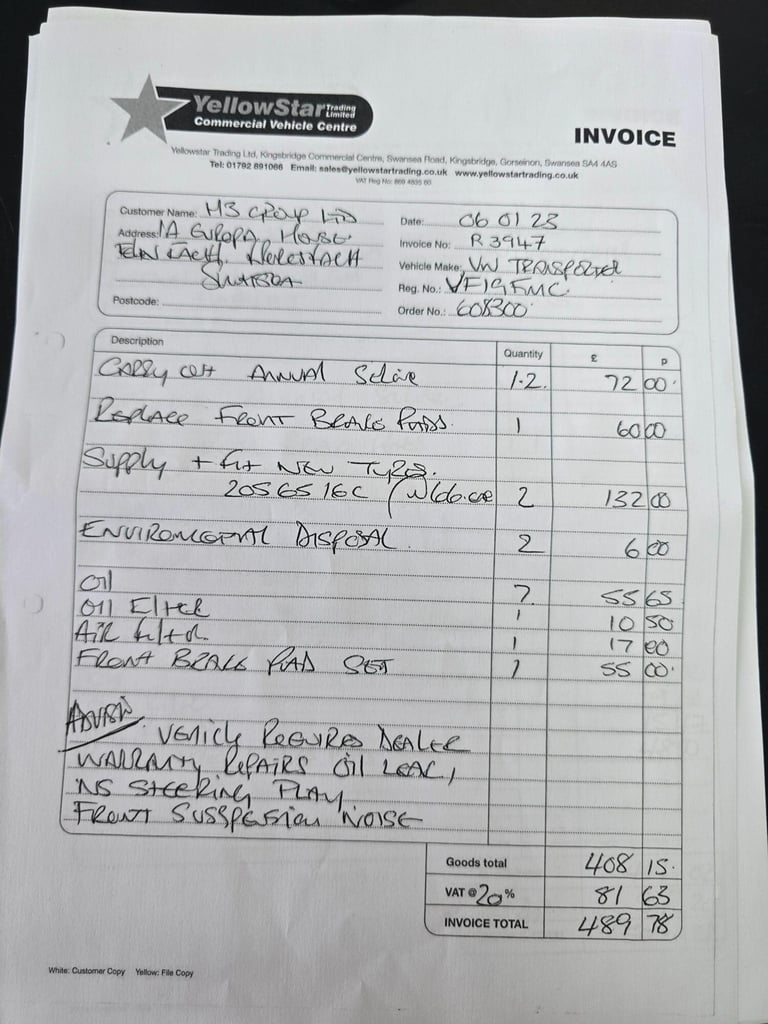 YellowStar Trading Limited
Commercial Vehicle Centre
INVOICE
Yellowstar Trading Ltd, Kingsbridge Commercial Centre, Swansea Road, Kingsbridge, Gorseinon, Swansea SA4 4AS
Tel: 01792 891066 Email: sales@yellowstartrading.co.uk www.yellowstartrading.co.uk
VAT Reg No: 869 4835 60
Customer Name: M3 GROUP LTD
Date: 06 01 23
Address: 1A EUROPA HOUSE
Invoice No: R 3947
Vehicle Make: VW TRANSPORTER
SWANSEA
Reg. No.: VF19FMC
Postcode:
Order No.: 608300
Description Quantity £ p
CARRY OUT ANNUAL 1.2 72 00
REPLACE FRONT BRAKE PADS 1 60 00
SUPPLY + fit NEW TYRES.
205 65 16C 2 132 00
ENVIROMENTAL DISPOSAL. 2 6 00
OIL 7 55 65
OIL FILTER 1 10 50
AIR filter 1 17 00
FRONT BRAKE PAD SET 1 55 00
ADVISE VEHICLE REQUIRES DEALER
WARRANTY REPAIRS OIL LEAC,
NS STEERING PLAY
FRONT SUSSPENSION NOISE
Goods total 408 15
VAT @ 20 % 81 63
INVOICE TOTAL 489 78
White: Customer Copy Yellow: File Copy